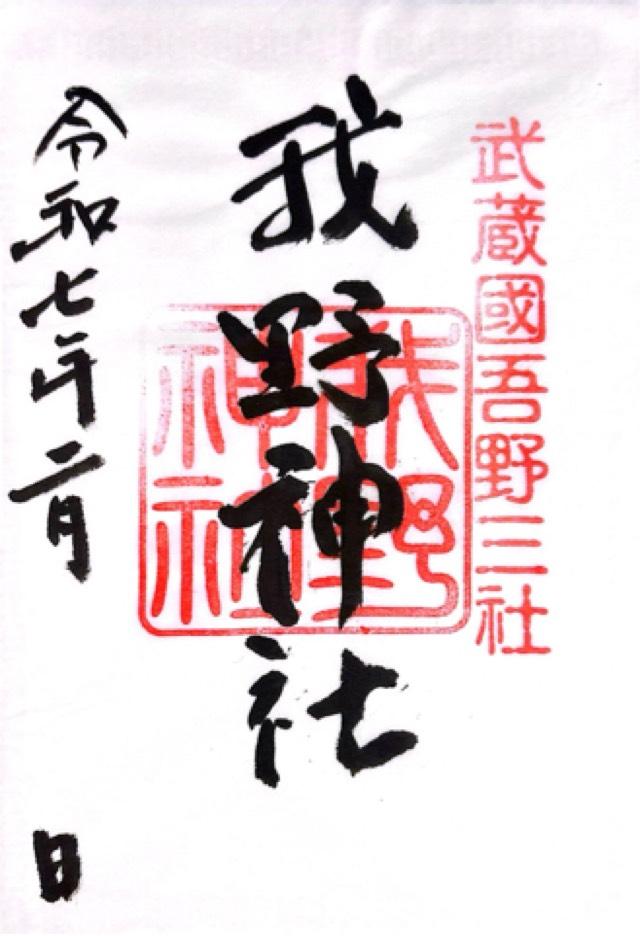 武蔵國吾野三社
我野神社
我野神社
令和七年二月 日